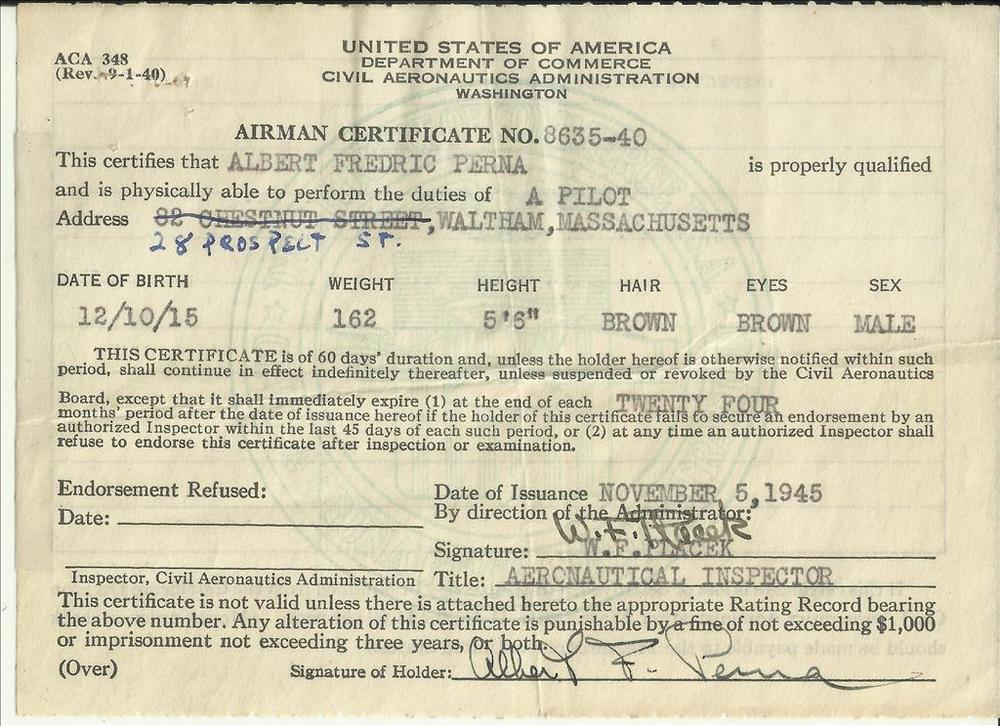 ACA 348
(Rev. 9-1-40)
UNITED STATES OF AMERICA
DEPARTMENT OF COMMERCE
CIVIL AERONAUTICS ADMINISTRATION
WASHINGTON
AIRMAN CERTIFICATE NO. 8635-40
This certifies that ALBERT FREDRIC PERNA is properly qualified
and is physically able to perform the duties of A PILOT
Address 82 CHESTNUT STREET, WALTHAM, MASSACHUSETTS
28 PROSPECT ST.
DATE OF BIRTH WEIGHT HEIGHT HAIR EYES SEX
12/10/15 162 5'6" BROWN BROWN MALE
THIS CERTIFICATE is of 60 days' duration and, unless the holder hereof is otherwise notified within such
period, shall continue in effect indefinitely thereafter, unless suspended or revoked by the Civil Aeronautics
Board, except that it shall immediately expire (1) at the end of each TWENTY FOUR
months' period after the date of issuance hereof if the holder of this certificate fails to secure an endorsement by an
authorized Inspector within the last 45 days of each such period, or (2) at any time an authorized Inspector shall
refuse to endorse this certificate after inspection or examination.
Endorsement Refused:
Date:
Inspector, Civil Aeronautics Administration
Date of Issuance NOVEMBER 5, 1945
By direction of the Administrator:
W. F. Placek
Signature: W.F. PLACEK
Title: AERONAUTICAL INSPECTOR
This certificate is not valid unless there is attached hereto the appropriate Rating Record bearing
the above number. Any alteration of this certificate is punishable by a fine of not exceeding $1,000
or imprisonment not exceeding three years, or both.
(Over) Signature of Holder: Albert F. Perna